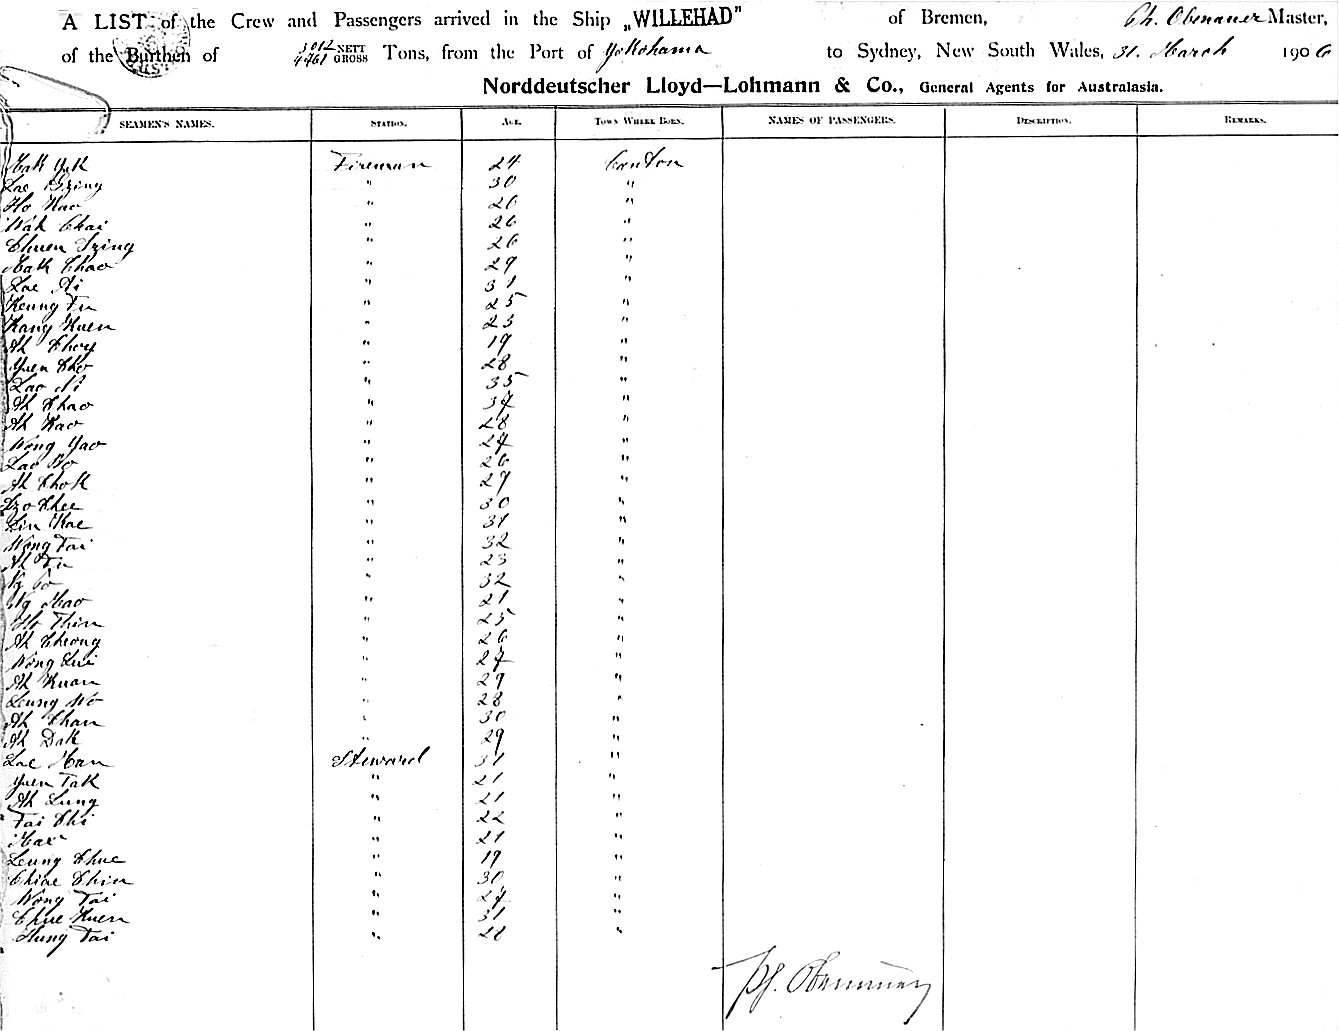 A LIST of the Crew and Passengers arrived in the Ship „WILLEHAD" of Bremen, Ch. Obenauer Master,
of the Burthen of 3012 NETT 4761 GROSS Tons, from the Port of Yokohama to Sydney, New South Wales, 31. March 1906
Norddeutscher Lloyd—Lohmann & Co., General Agents for Australasia.
SEAMEN'S NAMES. STATION. AGE. TOWN WHERE BORN. NAMES OF PASSENGERS. DESCRIPTION. REMARKS.
Mak Yuk Fireman 24 Canton
Lae Tzing " 30 "
Ho Kao " 26 "
Wak Chai " 26 "
Chuen Tzing " 26 "
Mak Chao " 29 "
Lae Ai " 31 "
Keung Fu " 25 "
Kang Kuen " 23 "
Ah Choy " 19 "
Yuen Cho " 28 "
Lao Ni " 35 "
Ah Chao " 34 "
Ah Kao " 28 "
Wong Yao " 24 "
Lao Bo " 26 "
Ah Chok " 27 "
Dzo Chee " 30 "
Lin Kae " 31 "
Wong Tai " 32 "
Ah Fu " 23 "
" 32 "
Ng Mao " 21 "
Ho Thin " 25 "
Ah Cheong " 26 "
Wong Lui " 24 "
Ah Kuan " 29 "
Leung Wo " 28 "
Ah Chan " 30 "
Ah Dak " 29 "
Lae Man Steward 31 "
Yuen Tak " 21 "
Ah Lung " 21 "
Tai Chi " 22 "
" 21 "
Leung Chue " 19 "
Chiae Chin " 30 "
Wong Tai " 24 "
Chue Kuen " 31 "
Hung Tai " "
Ch. Obenauer